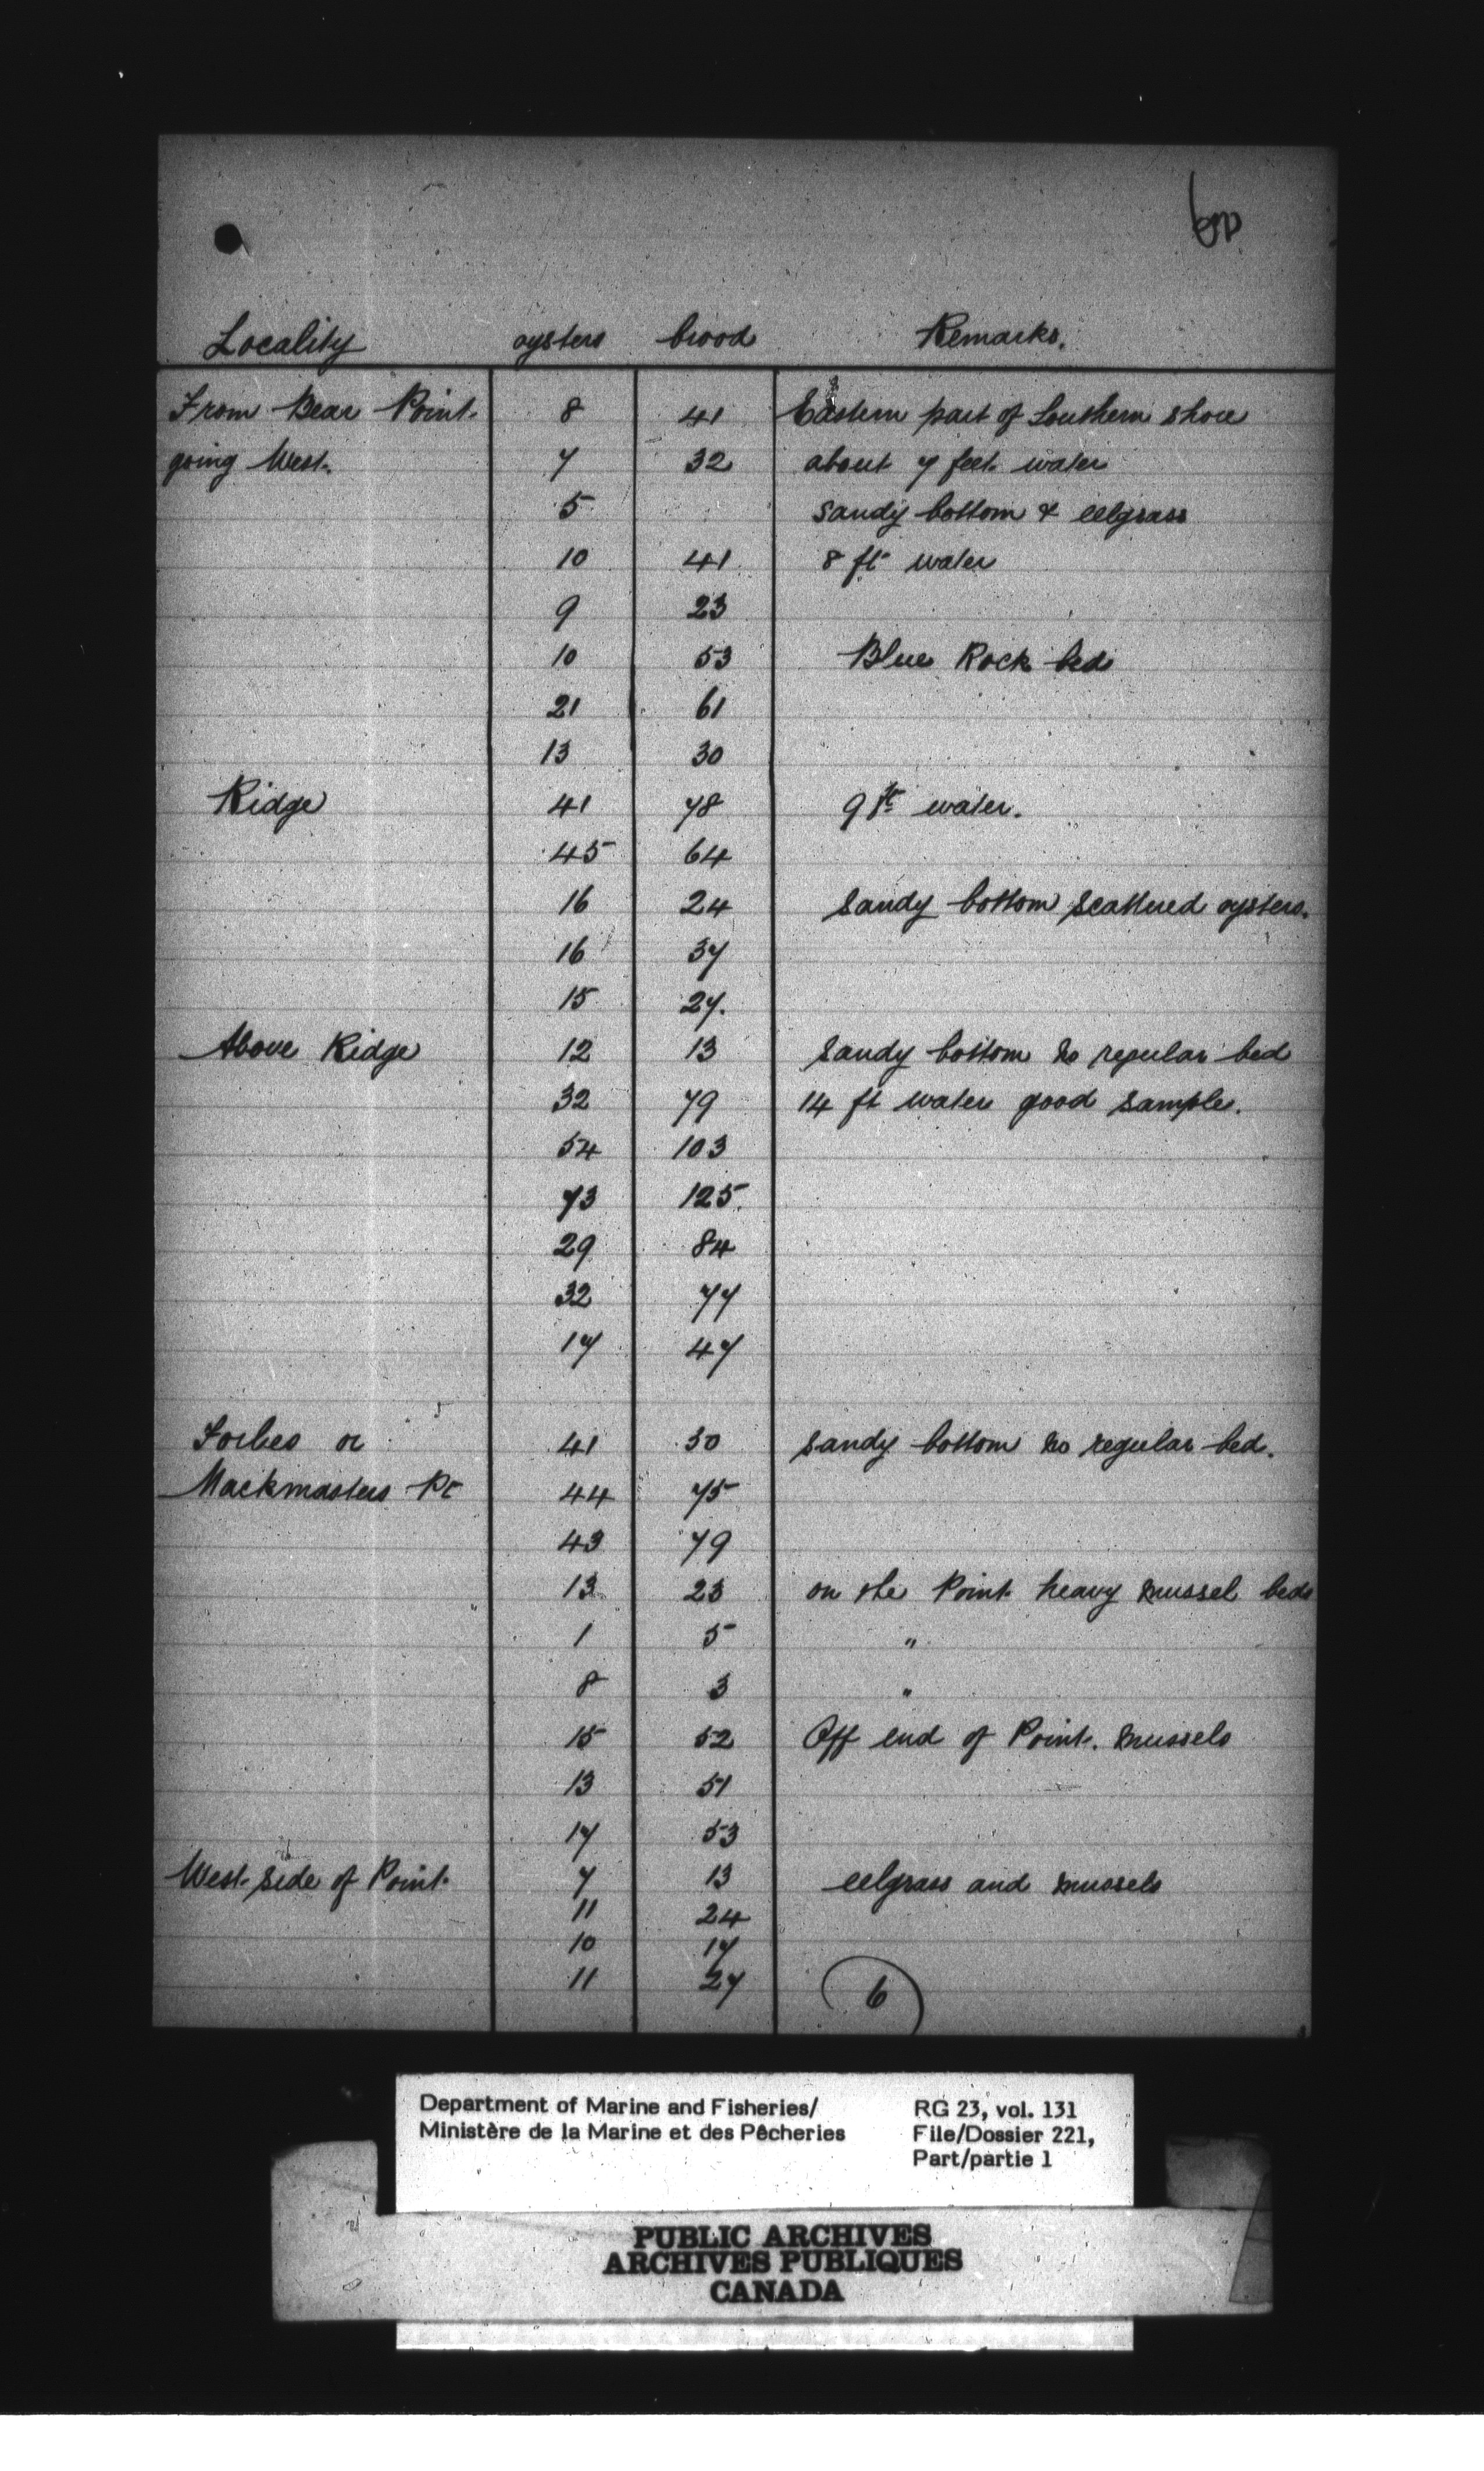 Locality oysters brood Remarks.
From Bear Point 8 41 Eastern part of Southern shore
going West. 7 32 about 7 feet water
5 sandy bottom & eelgrass
10 41 8 ft water
9 23
10 53 Blue Rock bed
21 61
13 30
Ridge 41 78 9 ft water.
45 64
16 24 Sandy bottom scattered oysters.
16 37
15 27.
Above Ridge 12 13 Sandy bottom no regular bed
32 79 14 ft water good sample.
54 103
73 125
29 84
32 77
17 47
Forbes or 41 30 Sandy bottom no regular bed.
Mackmasters Pt 44 75
43 79
13 23 on the Point heavy mussel beds
1 5 "
8 3 "
15 52 Off end of Point. mussels
13 51
17 53
West side of Point. 7 13 eelgrass and mussels
11 24
10 17
11 27
6
Department of Marine and Fisheries/ RG 23, vol. 131
Ministère de la Marine et des Pêcheries File/Dossier 221,
Part/partie 1
PUBLIC ARCHIVES
ARCHIVES PUBLIQUES
CANADA